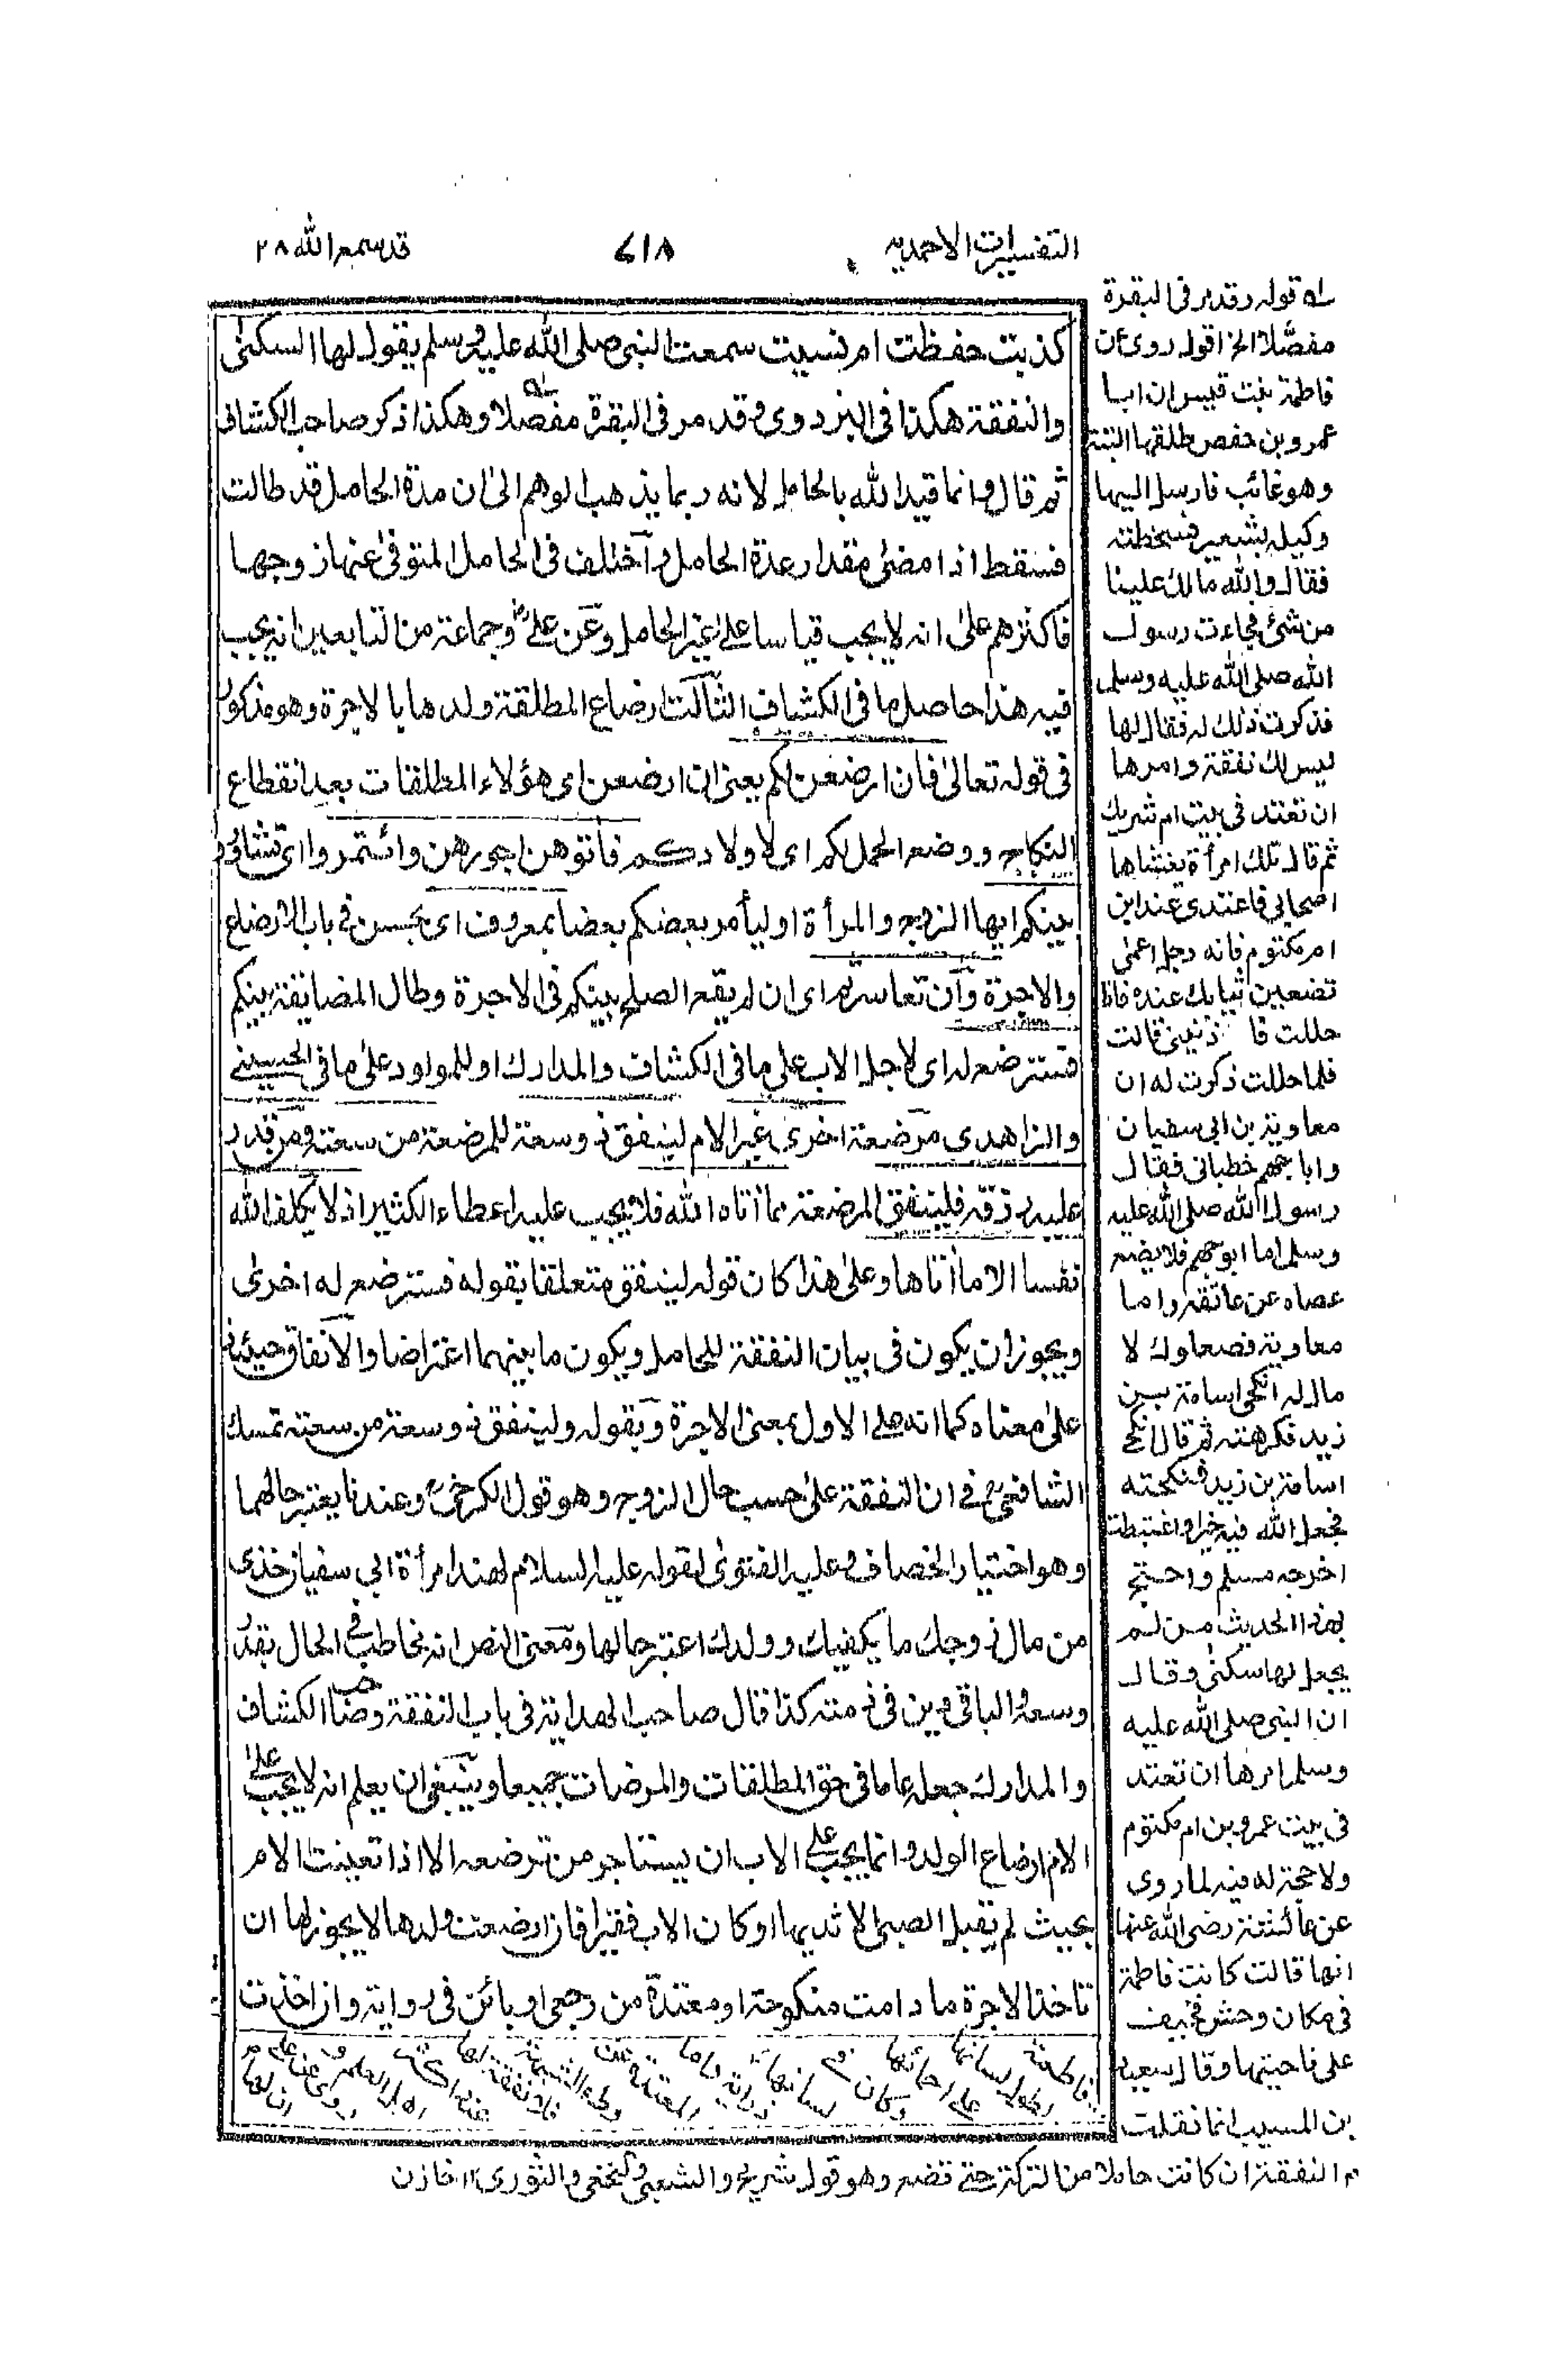 التفسيرات الاحمديه
٧١٨
قد سمع الله ٢٨
كذبت حفظت ام نسيت سمعت النبى صلى الله عليه وسلم يقول لها السكنى
والنفقة هكذا فى البزدوى وقد مر فى البقرة مفصلا وهكذا ذكر صاحب الكشاف
ثم قال وانما قيد الله بالحامل لانه ربما يذهب الوهم الى ان مدة الحامل قد طالت
فتسقط اذا مضى مقدار عدة الحامل وآختلف فى الحامل المتوفى عنها زوجها
فاكثرهم على انه لا يجب قياسا على غير الحامل وعن على رض وجماعة من التابعين انه يجب
فيه هذا حاصل ما فى الكشاف الثالث ارضاع المطلقة ولدها بالاجرة وهو مذكور
فى قوله تعالى فان ارضعن لكم يعنى ان ارضعن اى هؤلاء المطلقات بعد انقطاع
النكاح ووضع الحمل لكم اى لاولادكم فاتوهن اجورهن وائتمروا اى تشاوروا
بينكم ايها الزوج والمرأة او ليأمر بعضكم بعضا بمعروف اى بحسن فى باب الارضاع
والاجرة وآن تعاسرتم اى ان لم يقع الصلح بينكم فى الاجرة وطال المضايقة بينكم
فسترضع له اى لاجل الاب على ما فى الكشاف والمدارك او للمولود على ما فى الحسينے
والزاهدى مرضعة اخرى غير الام لينفق ذو وسعة للمرضعة من سعته ومن قدر
عليه رزقه فلينفق المرضعة مما أتاه الله فلا يجب عليه اعطاء الكثير اذ لا يكلف الله
نفسا الا ما أتاها وعلى هذا كان قوله لينفق متعلقا بقوله فسترضع له اخرى
ويجوز ان يكون فى بيان النفقة للحامل ويكون ما بينهما اعتراضا والانفاق حينئذ
على معناه كما انه على الاول بمعنى الاجرة وبقوله ولينفق ذو سعة من سعته تمسك
الشافعى رح فے ان النفقة على حسب حال الزوج وهو قول الكرخى رح وعندنا يعتبر حالهما
وهو اختيار الخصاف وعليه الفتوى لقوله عليه السلام لهند امرأة ابي سفيان خذى
من مال زوجك ما يكفيك وولدك اعتبر حالها ومعنى النص انه يخاطب فى الحال بقدر
وسعه والباقى دين فى ذمته كذا قال صاحب الهداية فى باب النفقة وصاحب الكشاف
والمدارك جعله عاما فى حق المطلقات والمرضعات جميعا وينبغى ان يعلم انه لا يجب على
الام ارضاع الولد وانما يجب على الاب ان يستاجر من ترضعه الا اذا تعينت الام
بحيث لم يقبل الصبى الا ثديها او كان الاب فقيرا فان ارضعت ولدها لا يجوز لها ان
تاخذ الاجرة ما دامت منكوحة او معتدة من رجعى او بائن فى رواية وان اخذت
له قوله وقد مر فى البقرة
مفصلا الخ اقول روى ان
فاطمة بنت قيس ان ابا
عمرو بن حفص طلقها البتة
وهو غائب فارسل اليها
وكيله بشعير فسخطته
فقال والله مالك علينا
من شئ فجاءت رسول
الله صلى الله عليه وسلم
فذكرت ذلك له فقال لها
ليس لك نفقة وامرها
ان تعتد فى بيت ام شريك
ثم قال تلك امرأة يغشاها
اصحابى فاعتدى عند ابن
ام مكتوم فانه رجل اعمى
تضعين ثيابك عنده فاذا
حللت فا ذنينى قالت
فلما حللت ذكرت له ان
معاوية بن ابى سفيان
وابا جهم خطبانى فقال
رسول الله صلى الله عليه
وسلم اما ابو جهم فلا يضع
عصاه عن عاتقه واما
معاوية فصعلوك لا
مال له انكحى اسامة بن
زيد فكرهته ثم قال انكحے
اسامة بن زيد فنكحته
فجعل الله فيه خيرا واغتبطت
اخرجه مسلم واحتج
بهذا الحديث من لم
يجعل لها سكنى وقال
ان النبى صلى الله عليه
وسلم امرها ان تعتد
فى بيت عمرو بن ام مكتوم
ولا حجة له فيه لما روى
عن عائشة رضى الله عنها
انها قالت كانت فاطمة
فى مكان وحش فخيف
على ناحيتها وقال سعيد
بن المسيب انما نقلت
النفقة ان كانت حاملا من التركة حتے تضع وهو قول شريح والشعبى والنخعى والثورى ١٢ خازن